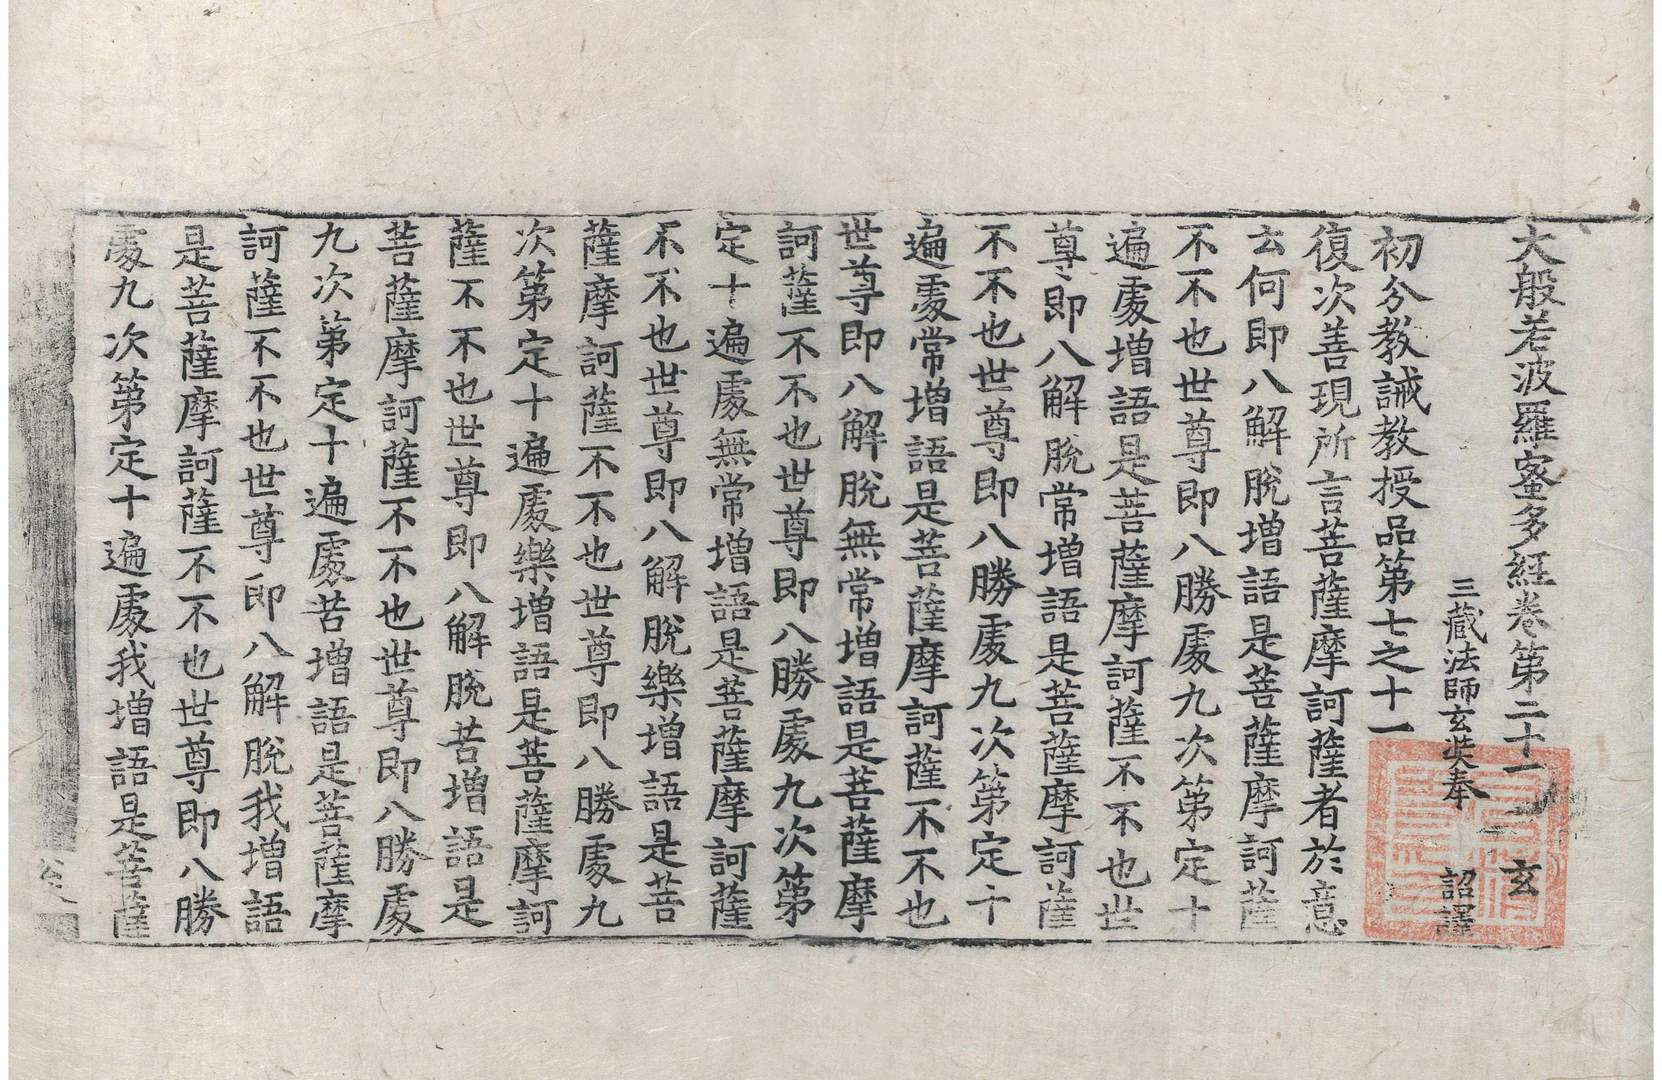 大般若波羅蜜多經卷第二十一 玄
三藏法師玄奘奉 詔譯
初分教誡教授品第七之十一
復次善現所言菩薩摩訶薩者於意
云何即八解脫增語是菩薩摩訶薩
不不也世尊即八勝處九次第定十
遍處增語是菩薩摩訶薩不不也世
尊即八解脫常增語是菩薩摩訶薩
不不也世尊即八勝處九次第定十
遍處常增語是菩薩摩訶薩不不也
世尊即八解脫無常增語是菩薩摩
訶薩不不也世尊即八勝處九次第
定十遍處無常增語是菩薩摩訶薩
不不也世尊即八解脫樂增語是菩
薩摩訶薩不不也世尊即八勝處九
次第定十遍處樂增語是菩薩摩訶
薩不不也世尊即八解脫苦增語是
菩薩摩訶薩不不也世尊即八勝處
九次第定十遍處苦增語是菩薩摩
訶薩不不也世尊即八解脫我增語
是菩薩摩訶薩不不也世尊即八勝
處九次第定十遍處我增語是菩薩